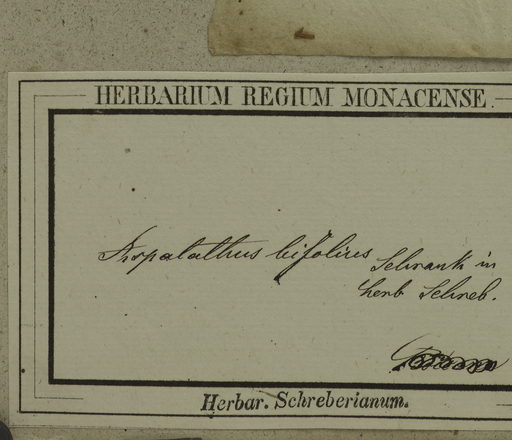 HERBARIUM REGIUM MONACENSE.
Aspalathus bifolius Schrank in
herb Schreb.
Herbar. Schreberianum.